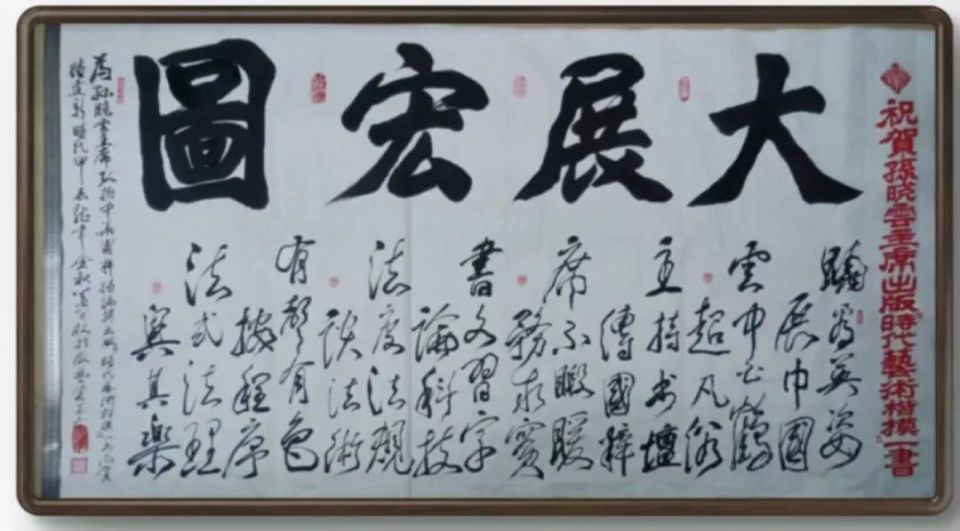 祝賀孫曉雲主席出版時代藝術楷模一書
大展宏圖
英姿
展巾國
雲中白鶴
超凡俗
主持書壇
傳國粹
席不暇暖
務求實
書文習字
論科技
法度法規
談法術
有聲有色
按程序
法式法理
其樂
為孫曉雲主席弘揚中華
新時代甲辰龍年金秋